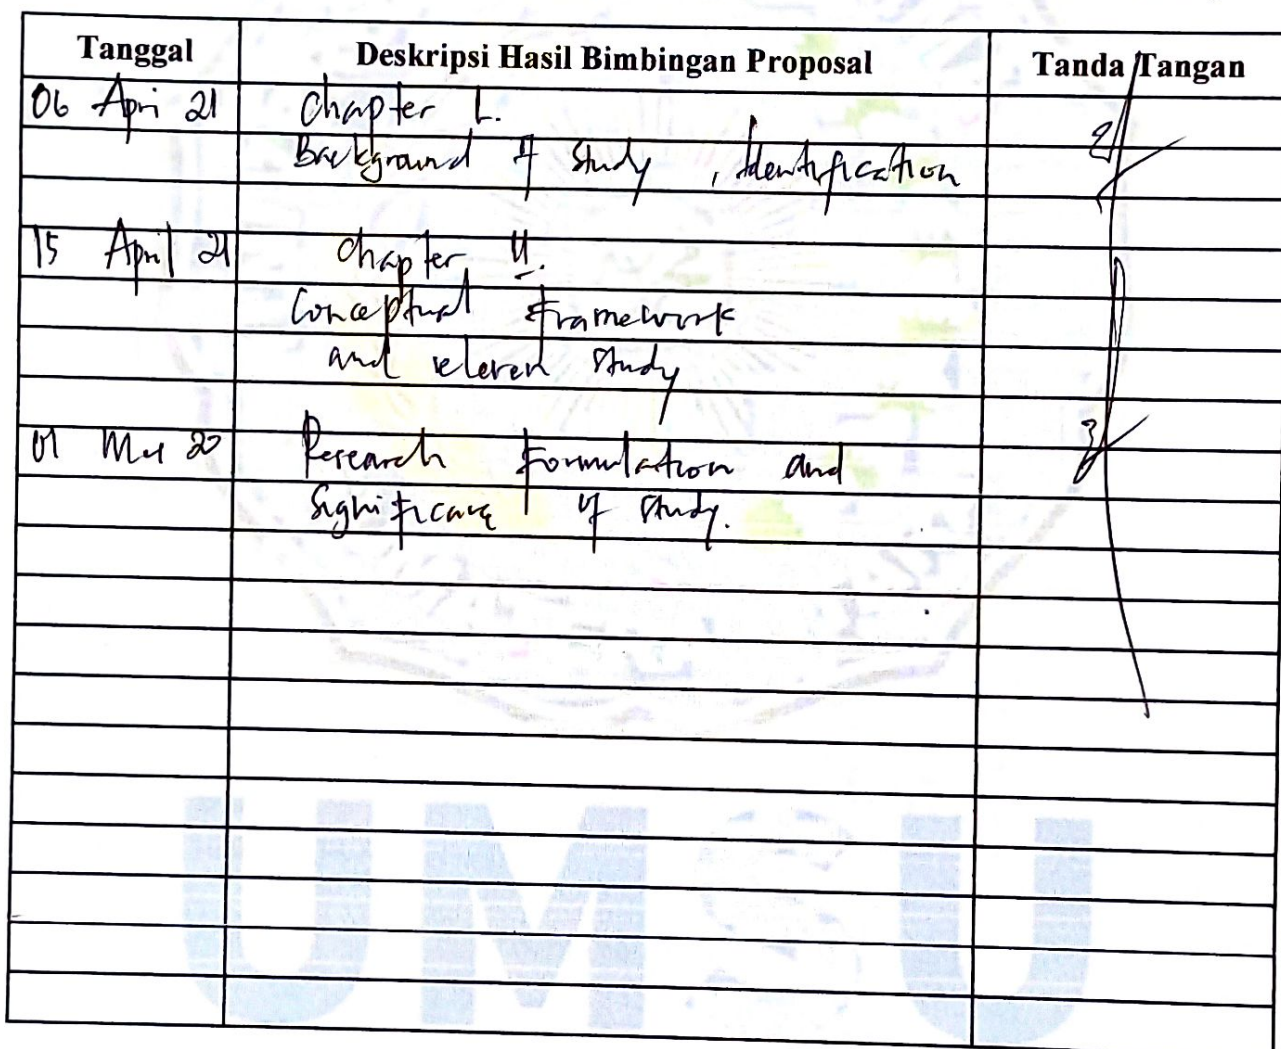 Tanggal Deskripsi Hasil Bimbingan Proposal Tanda Tangan
06 Apri 21 Chapter I.
Background of Study, Identification
15 April 21 Chapter II.
Conceptual Framework
and releven study
01 20 Research Formulation and
of study.
UMSU